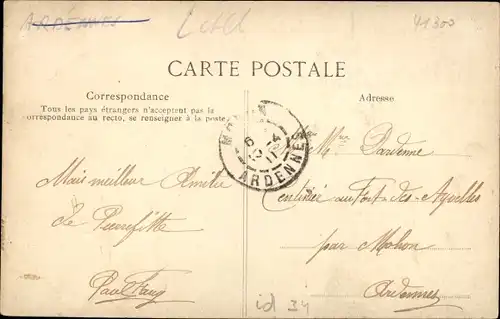 ARDENNES
41300
CARTE POSTALE
Correspondance
Tous les pays étrangers n'acceptent pas la
correspondance au recto, se renseigner à la poste
Adresse
ARDENNES
Mais meilleur Amitié
de Pierrefitte
Paul
Mr Dardenne
au Fort-des-Ayvelles
par Mohon
Ardennes
id 34